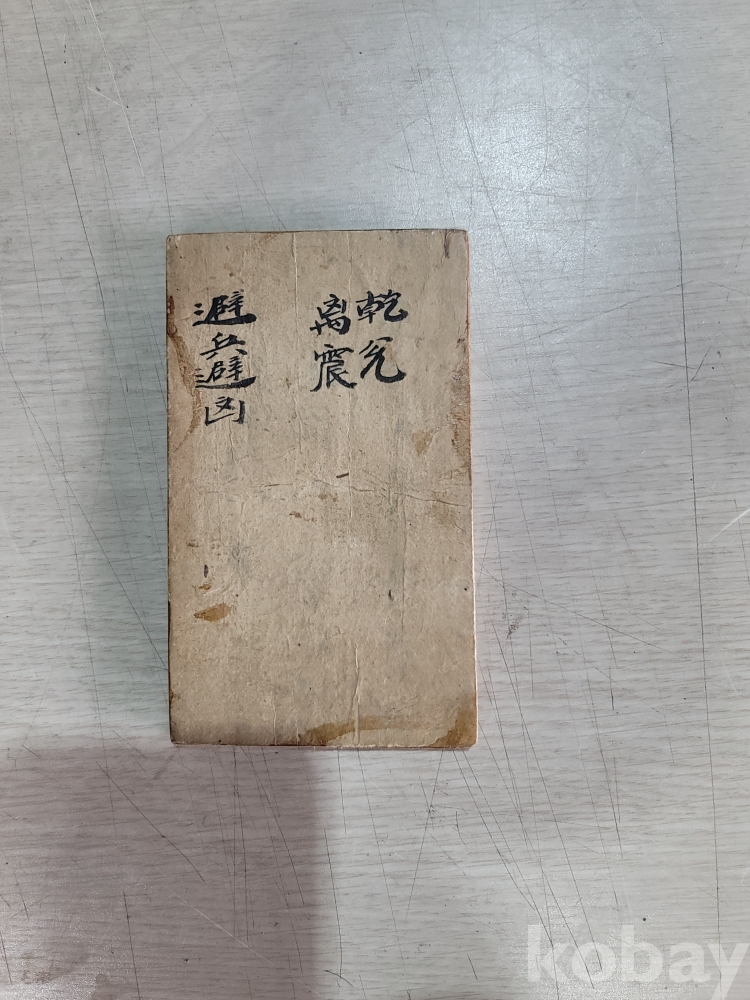 乾兌
离震
避兵避凶
kobay